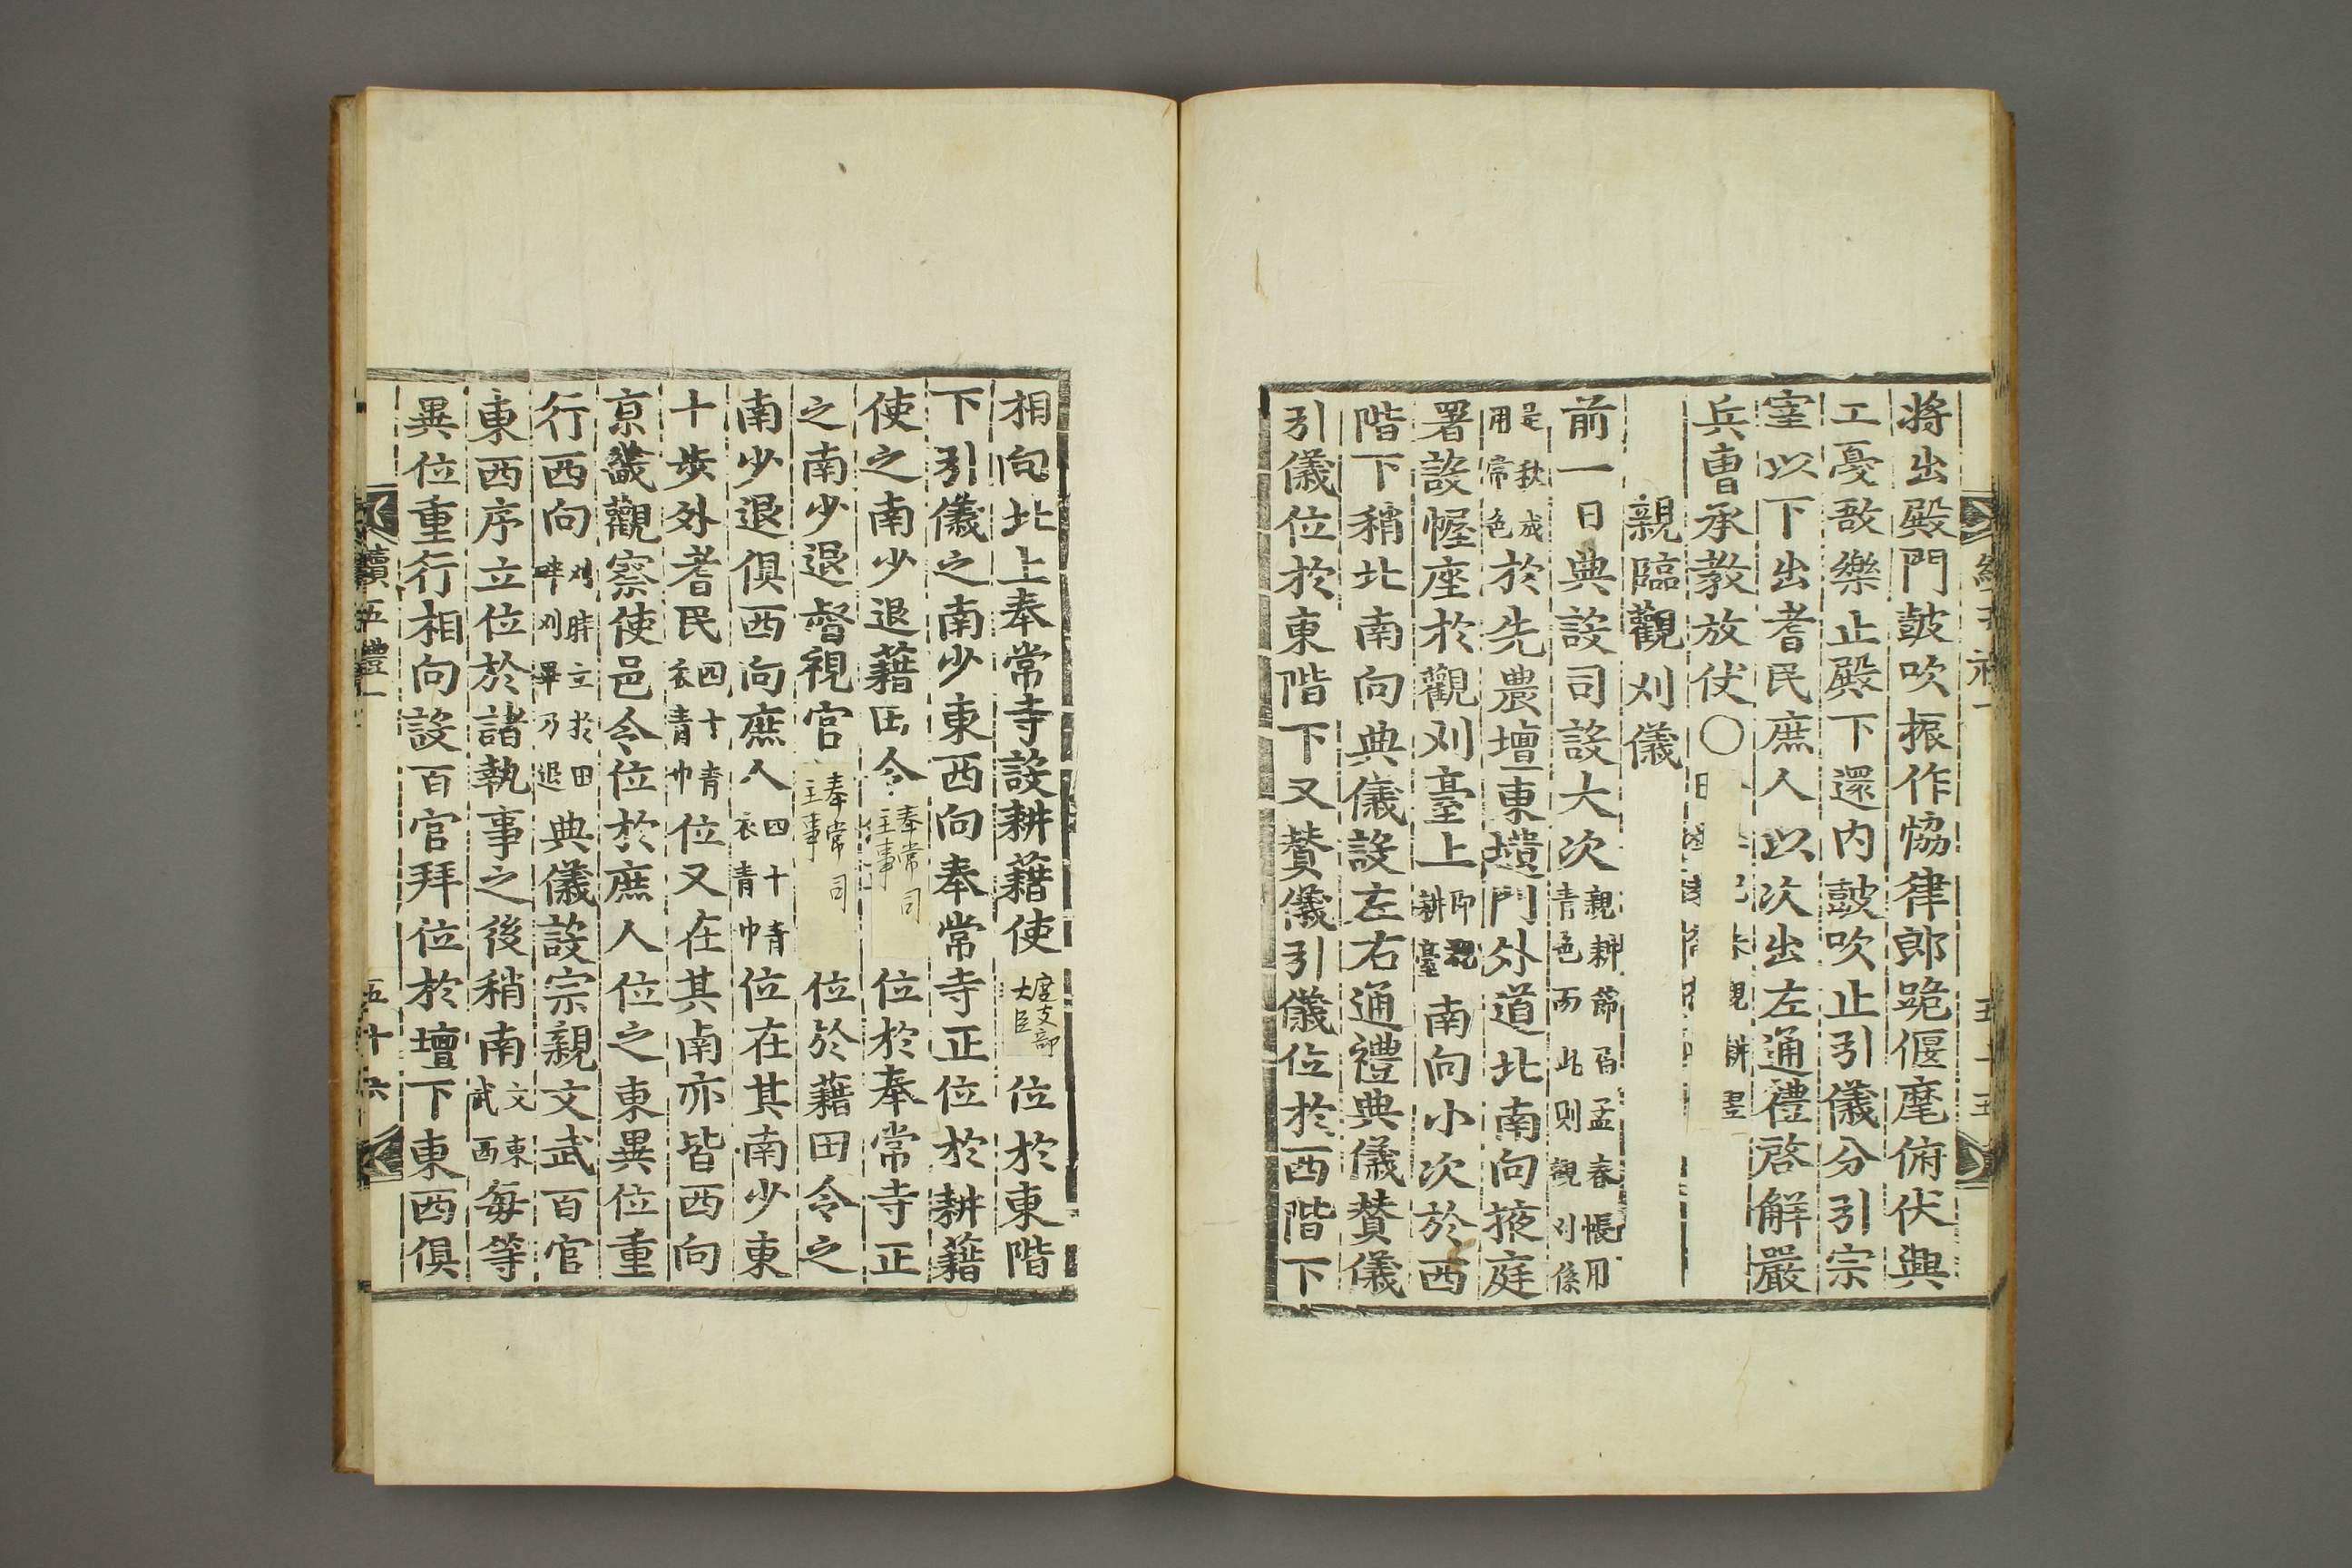 將出殿門鼓吹振作協律郎跪偃麾俯伏興
工戞敔樂止殿下還內鼓吹止引儀分引宗
宰以下出耆民庶人以次出左通禮啓解嚴
兵曹承敎放仗〇
親臨觀刈儀
前一日典設司設大次親耕節屆孟春帳用靑色而此則觀刈係
是秋成用常色於先農壇東壝門外道北南向掖庭
署設幄座於觀刈臺上卽觀耕臺南向小次於西
階下稍北南向典儀設左右通禮典儀贊儀
引儀位於東階下又贊儀引儀位於西階下
五十五
相向北上奉常寺設耕藉使度支部大臣位於東階
下引儀之南少東西向奉常寺正位於耕藉
使之南少退藉田令奉常司主事位於奉常寺正
之南少退督視官奉常司主事位於藉田令之
南少退俱西向庶人四十靑衣靑巾位在其南少東
十步外耆民四十靑衣靑巾位又在其南亦皆西向
京畿觀察使邑令位於庶人位之東異位重
行西向刈時立於田畔刈畢乃退典儀設宗親文武百官
東西序立位於諸執事之後稍南文東武西每等
異位重行相向設百官拜位於壇下東西俱
續五禮一
五十六